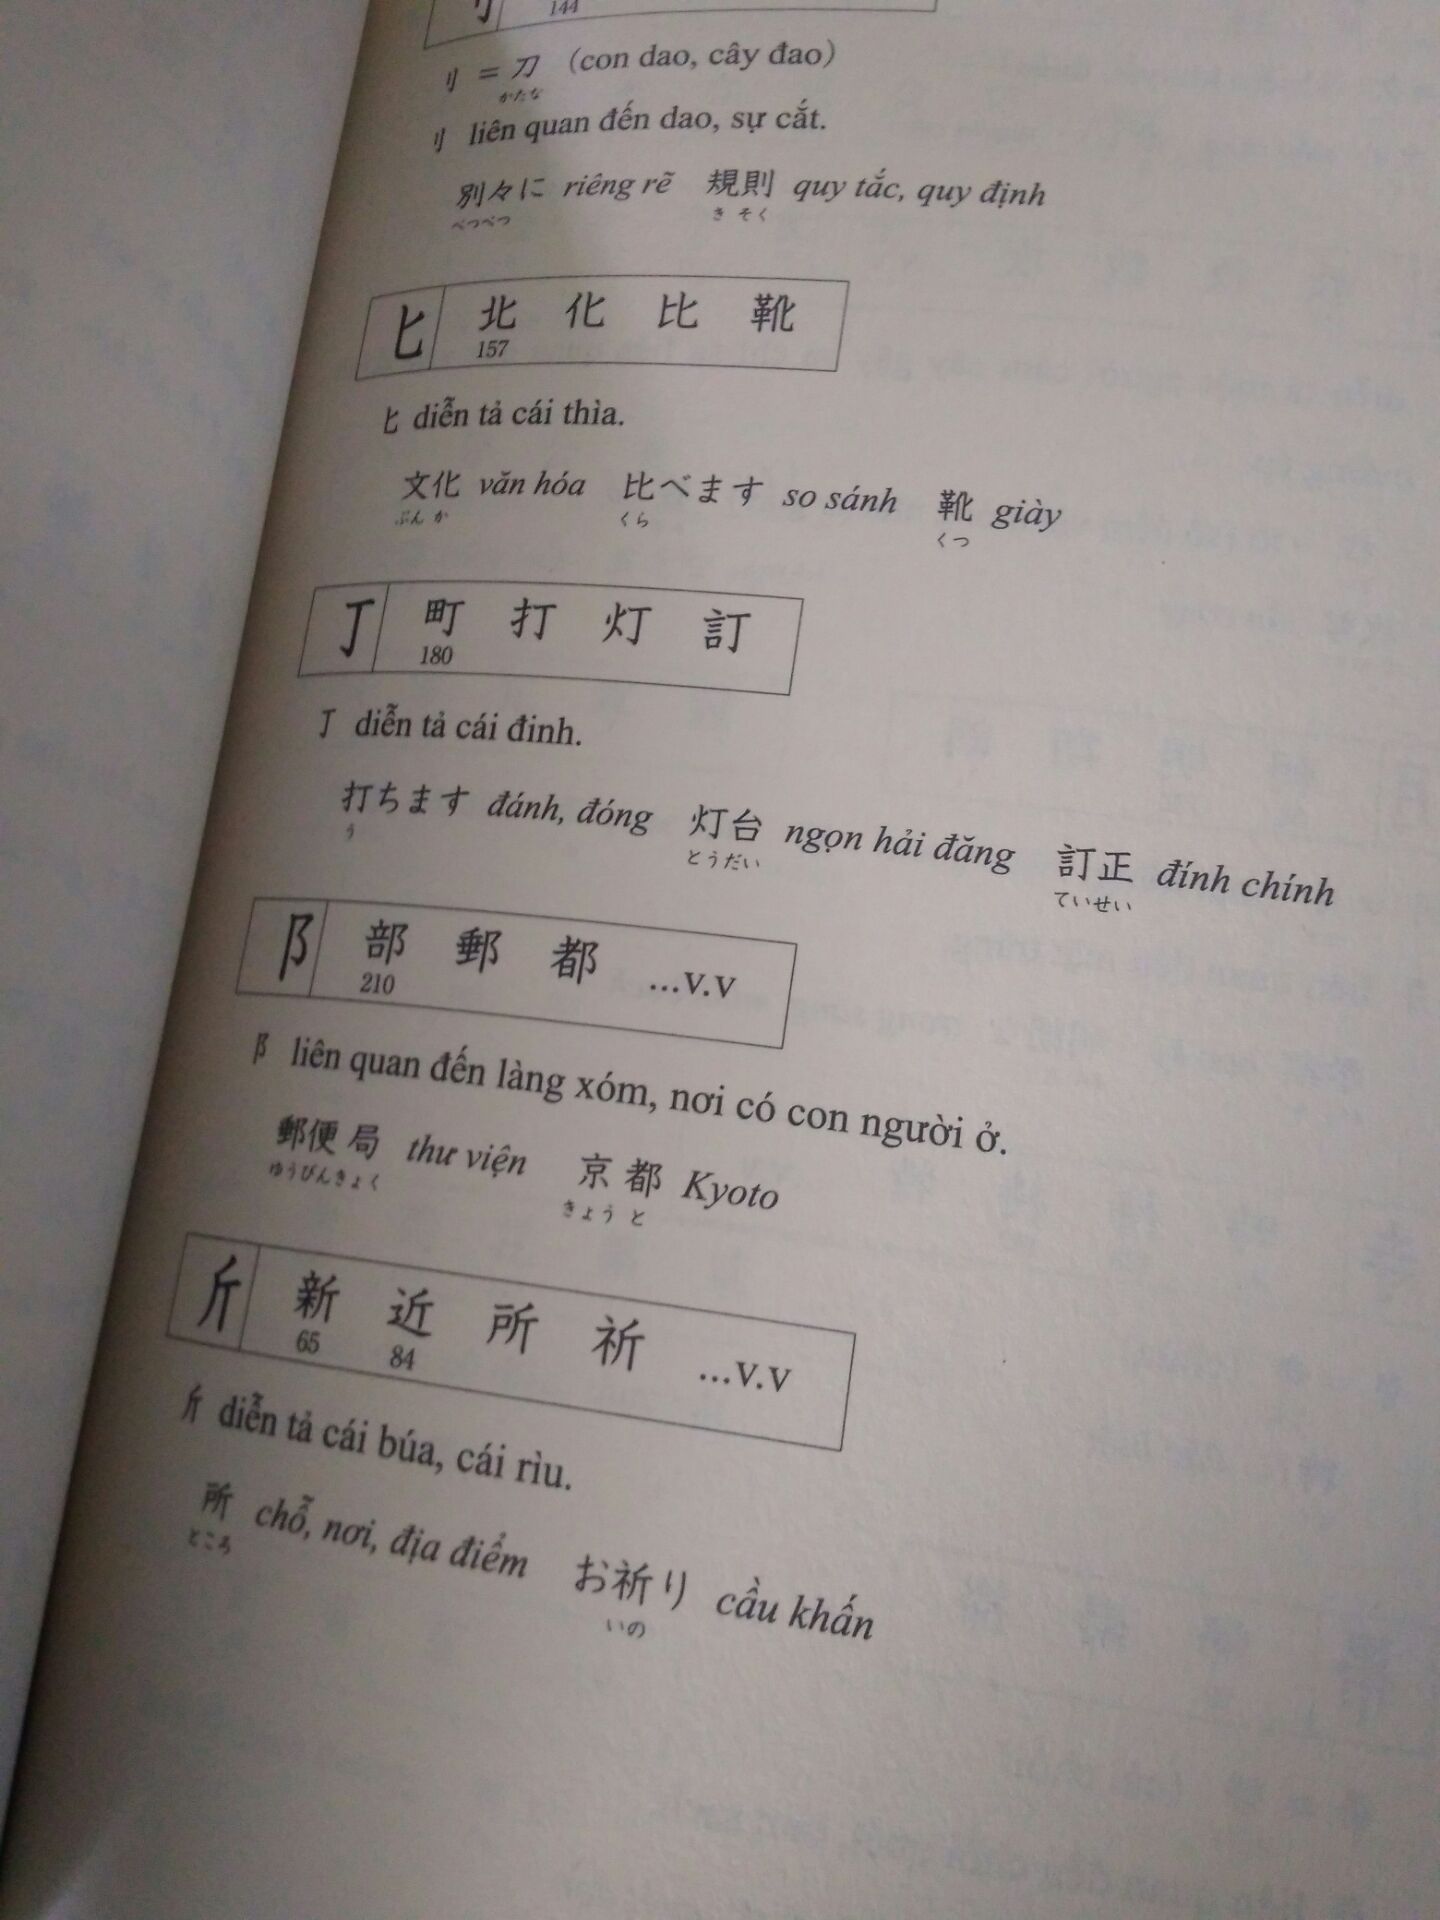 144
刂 = 刀 (con dao, cây đao)
かたな
刂 liên quan đến dao, sự cắt.
別々に riêng rẽ 規則 quy tắc, quy định
べつべつ きそく
匕 北 化 比 靴
157
匕 diễn tả cái thìa.
文化 văn hóa 比べます so sánh 靴 giày
ぶんか くら くつ
丁 町 打 灯 訂
180
丁 diễn tả cái đinh.
打ちます đánh, đóng 灯台 ngọn hải đăng 訂正 đính chính
う とうだい ていせい
阝 部 郵 都 ...v.v
210
阝 liên quan đến làng xóm, nơi có con người ở.
郵便局 thư viện 京都 Kyoto
ゆうびんきょく きょうと
斤 新 近 所 祈 ...v.v
65 84
斤 diễn tả cái búa, cái rìu.
所 chỗ, nơi, địa điểm お祈り cầu khấn
ところ いの